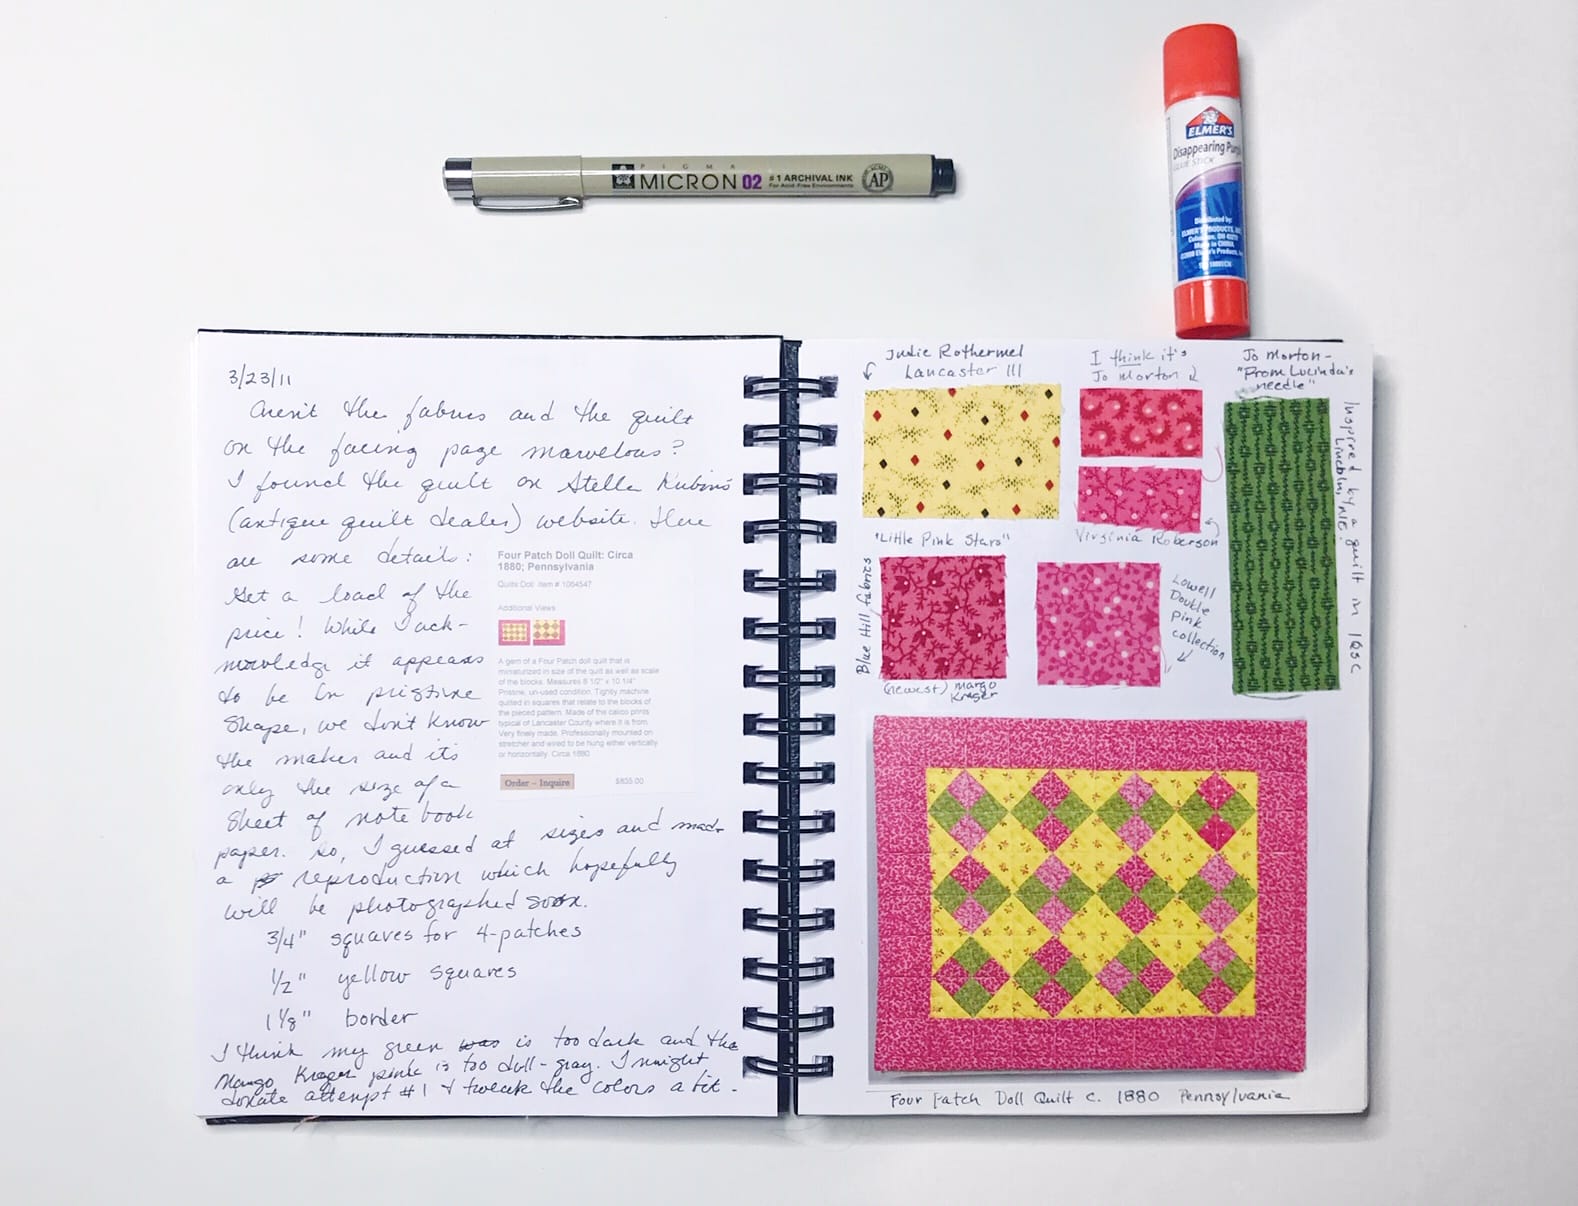 PIGMA
MICRON 02 #1 ARCHIVAL INK
For Acid-Free Environments
AP
ELMER'S
Disappearing Purple
GLUE STICK
Distributed by:
ELMER'S PRODUCTS, INC.
Columbus, OH
Made in CHINA
Elmer's Products, Inc.
3/23/11
Aren't the fabrics and the quilt
on the facing page marvelous?
I found the quilt on Stella Rubin's
(antique quilt dealer) website. Here
are some details:
Get a load of the
price! While I ack-
nowledge it appears
to be in pristine
shape, we don't know
the maker and its
only the size of a
sheet of notebook
paper. So, I guessed at sizes and made
a reproduction which hopefully
will be photographed soon.
3/4" squares for 4-patches
1/2" yellow squares
1 1/8" border
I think my green was is too dark and the
Margo Krager pink is too dull-gray. I might
donate attempt #1 & tweak the colors a bit.
Four Patch Doll Quilt: Circa
1880; Pennsylvania
Quilts Doll item # 1064547
Additional Views
A gem of a Four Patch doll quilt that is
miniaturized in size of the quilt as well as scale
of the blocks. Measures 8 1/2" x 10 1/4"
Pristine, un-used condition. Tightly machine
quilted in squares that relate to the blocks of
the pieced pattern. Made of the calico prints
typical of Lancaster County where it is from.
Very finely made. Professionally mounted on
stretcher and wired to be hung either vertically
or horizontally. Circa 1880
Order – Inquire $835.00
Judie Rothermel
Lancaster III
I think it's
Jo Morton
Jo Morton -
"From Lucinda's
needle"
Inspired by a quilt in IQSC
Lincoln, NE.
"Little Pink Stars"
Virginia Roberson
Blue Hill fabrics
(newest) Margo
Krager
Lowell
Double
Pink
collection
Four Patch Doll Quilt c. 1880 Pennsylvania